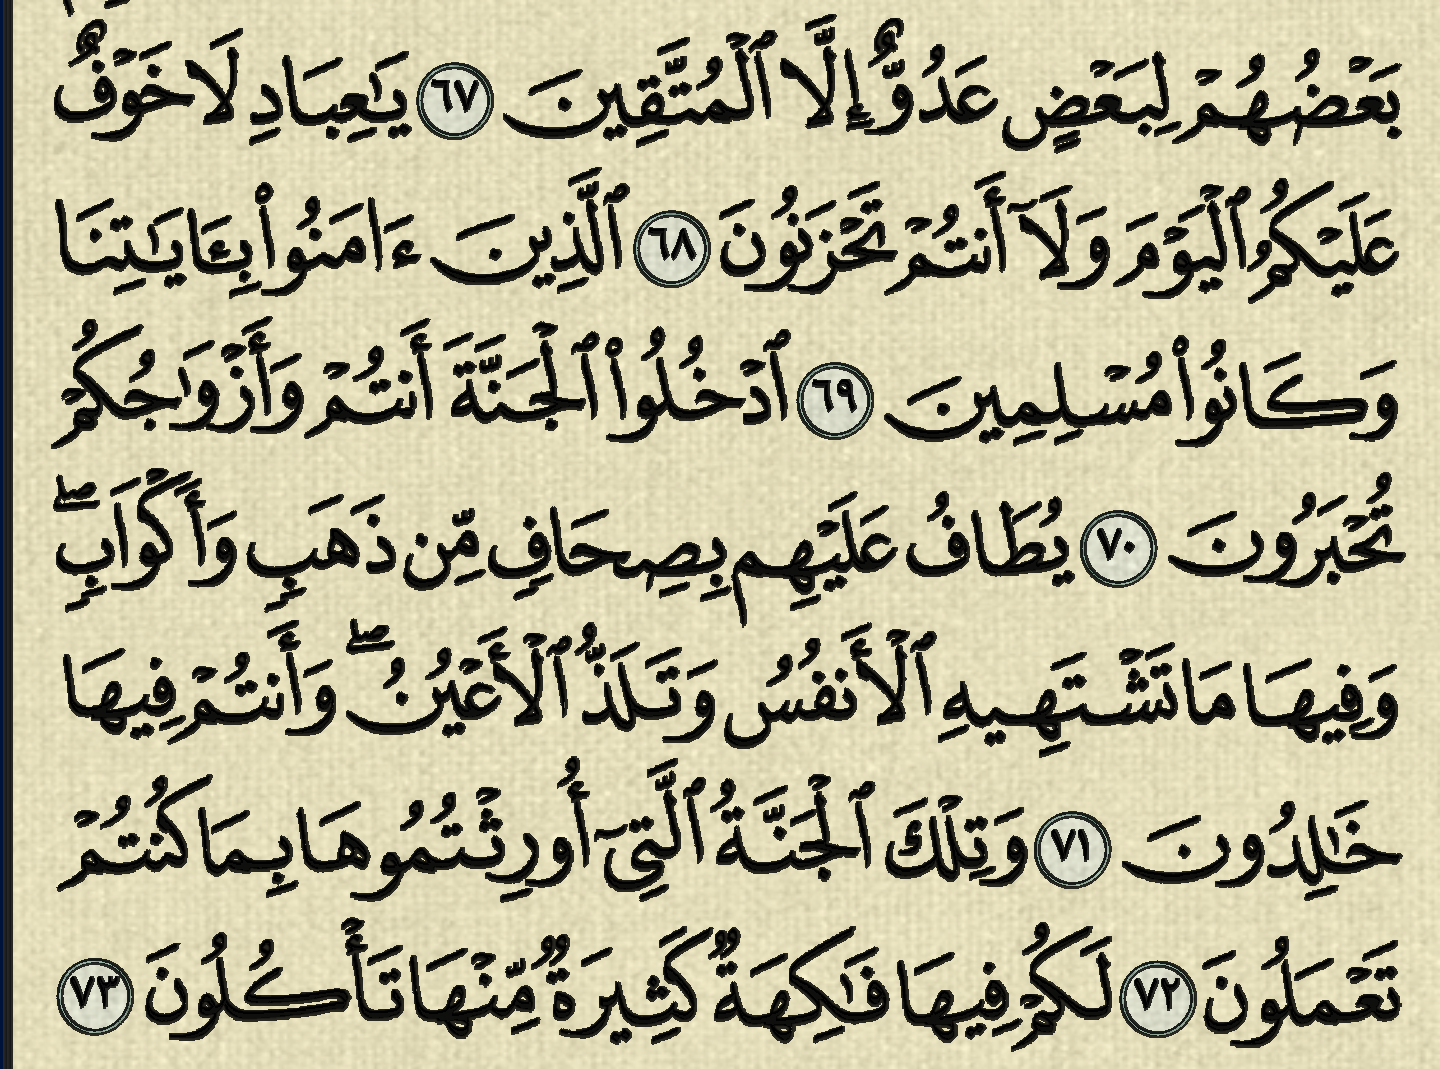 بَعْضُهُمْ لِبَعْضٍ عَدُوٌّ إِلَّا ٱلْمُتَّقِينَ ٦٧ يَٰعِبَادِ لَا خَوْفٌ
عَلَيْكُمُ ٱلْيَوْمَ وَلَآ أَنتُمْ تَحْزَنُونَ ٦٨ ٱلَّذِينَ ءَامَنُوا۟ بِـَٔايَٰتِنَا
وَكَانُوا۟ مُسْلِمِينَ ٦٩ ٱدْخُلُوا۟ ٱلْجَنَّةَ أَنتُمْ وَأَزْوَٰجُكُمْ
تُحْبَرُونَ ٧٠ يُطَافُ عَلَيْهِم بِصِحَافٍ مِّن ذَهَبٍ وَأَكْوَابٍ ۖ
وَفِيهَا مَا تَشْتَهِيهِ ٱلْأَنفُسُ وَتَلَذُّ ٱلْأَعْيُنُ ۖ وَأَنتُمْ فِيهَا
خَٰلِدُونَ ٧١ وَتِلْكَ ٱلْجَنَّةُ ٱلَّتِىٓ أُورِثْتُمُوهَا بِمَا كُنتُمْ
تَعْمَلُونَ ٧٢ لَكُمْ فِيهَا فَٰكِهَةٌ كَثِيرَةٌ مِّنْهَا تَأْكُلُونَ ٧٣